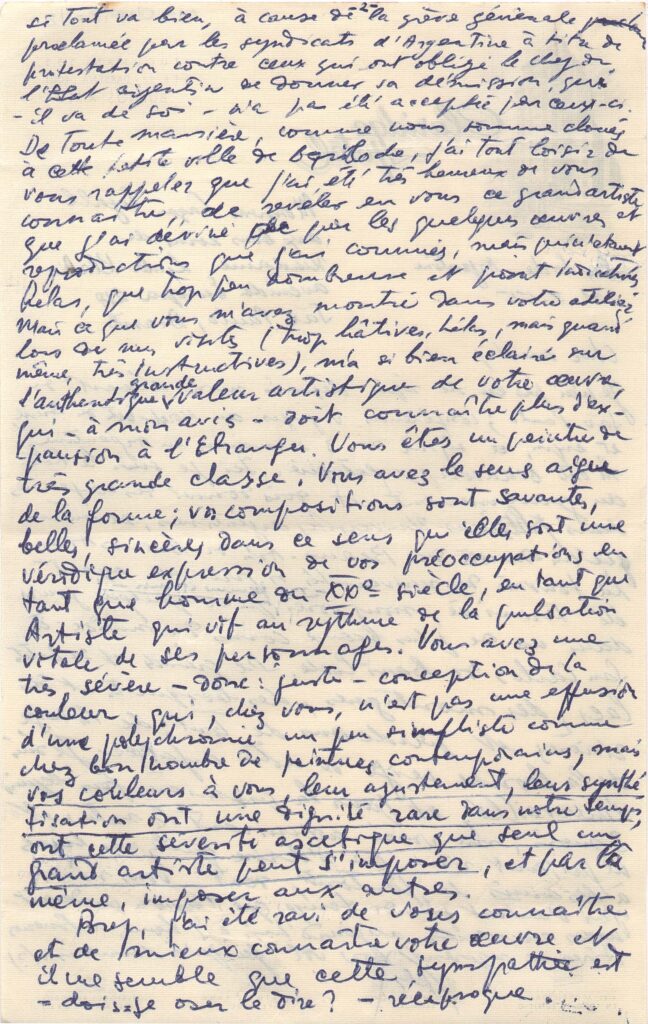 si tout va bien, à cause de la grève générale
proclamée par les syndicats d'Argentine à titre de
protestation contre ceux qui ont obligé le chef de
l'Etat argentin de donner sa démission, qui
- il va de soi - n'a pas été acceptée par ceux-ci.
De toute manière, comme nous somme cloués
à cette petite ville de Bariloche, j'ai tout loisir de
vous rappeler que j'ai été très heureux de vous
connaître, de révéler en vous ce grand artiste
que j'ai deviné par les quelques œuvres et
reproductions que j'ai connues, mais
hélas, que trop peu nombreuse et point indicatives
Mais ce que vous m'avez montré dans votre atelier
lors de mes visites (trop hâtives, hélas, mais quand
même, très instructives), m'a si bien éclairé sur
l'authentique grande valeur artistique de votre œuvre,
qui - à mon avis - doit connaître plus d'ex-
pansion à l'Etranger. Vous êtes un peintre de
très grande classe. Vous avez le sens aigu
de la forme; vos compositions sont savantes,
belles, sincères dans ce sens qu'elles sont une
véridique expression de vos préoccupations en
tant que homme du XXe siècle, en tant que
Artiste qui vit au rythme de la pulsation
vitale de ses personnages. Vous avez une
très sévère - donc: juste - conception de la
couleur, qui, chez vous, n'est pas une effusion
d'une polychromie un peu simpliste comme
chez bon nombre de peintres contemporains, mais
vos couleurs à vous, leur ajustement, leur synthé
tisation ont une dignité rare dans notre temps,
ont cette sévérité ascétique que seul un
grand artiste peut s'imposer, et par là
même, imposer aux autres.
Bref, j'ai été ravi de vous connaître
et de mieux connaître votre œuvre et
il me semble que cette sympathie est
- dois-je oser le dire? - réciproque.....